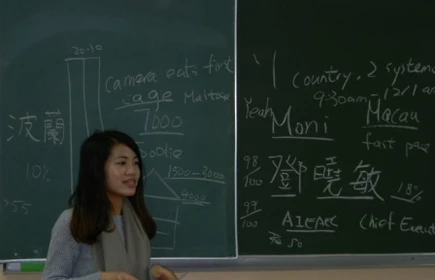 20-30
camera eats first
cage Maltose
7000
波蘭
foodie
1500-3000
4000
10%
55
1 country, 2 systems
9:30am
12/1
Yeah Moni Macau
fast pace
98/100
鄧曉敏
18%
99/100
AIESEC Chief Execut
50